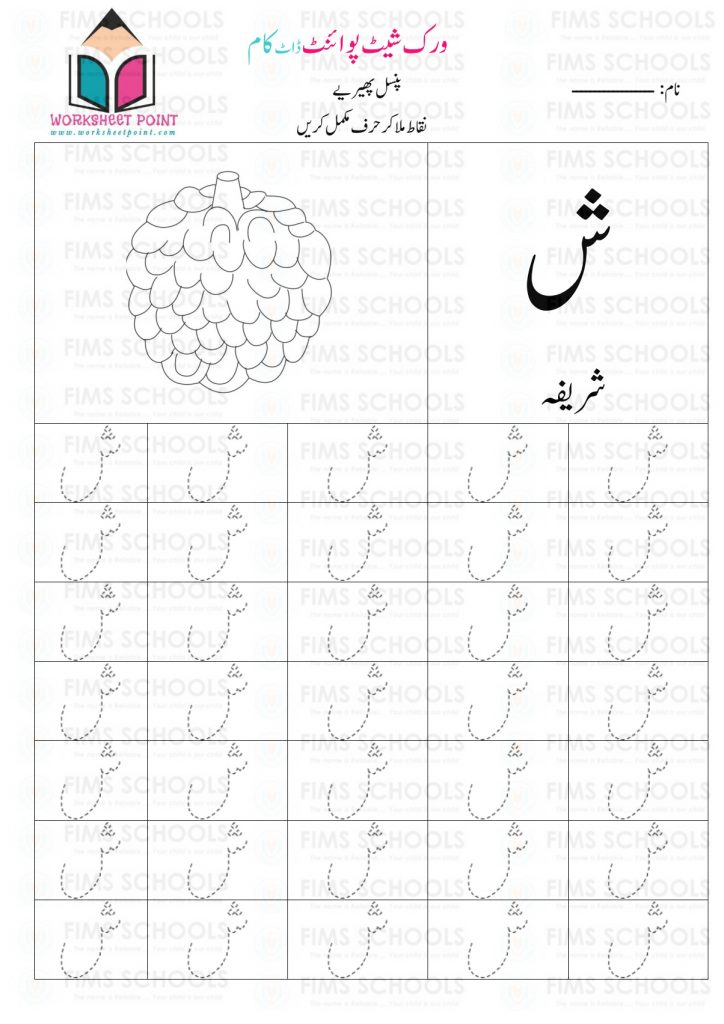 ورک شیٹ پوائنٹ ڈاٹ کام
WORKSHEET POINT
www.worksheetpoint.com
پنسل پھیریے
نام: ___________
نقاط ملا کر حرف مکمل کریں
ش
شریفہ
ش ش ش ش ش
ش ش ش ش ش
ش ش ش ش ش
ش ش ش ش ش
ش ش ش ش ش
ش ش ش ش ش
ش ش ش ش ش
FIMS SCHOOLS
The name is Reliable.... Your child is our child